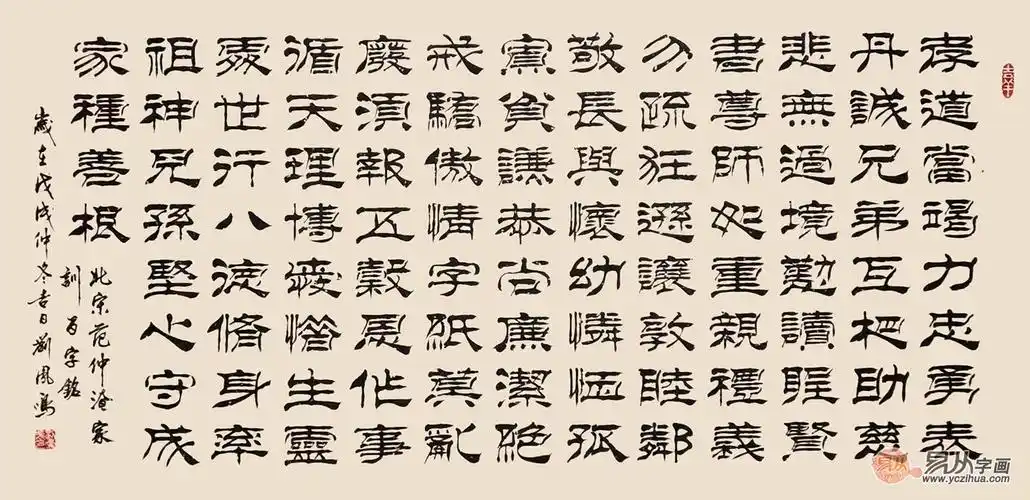 孝道當竭力忠勇表
丹誠兄弟互相助慈
悲無過境勤讀聖賢
書尊師如重親禮義
勿疏狂遜讓敦睦鄰
敬長與懷幼憐恤孤
寡貧謙恭尚廉潔絕
戒驕傲情字紙莫亂
廢須報五穀恩作事
循天理博愛惜生靈
處世行八德修身率
祖神兒孫堅心守成
家種善根
北宋范仲淹家
訓百字銘
歲在戊戌仲冬吉日劉鳳
吉羊
易从字画
www.yczihua.com